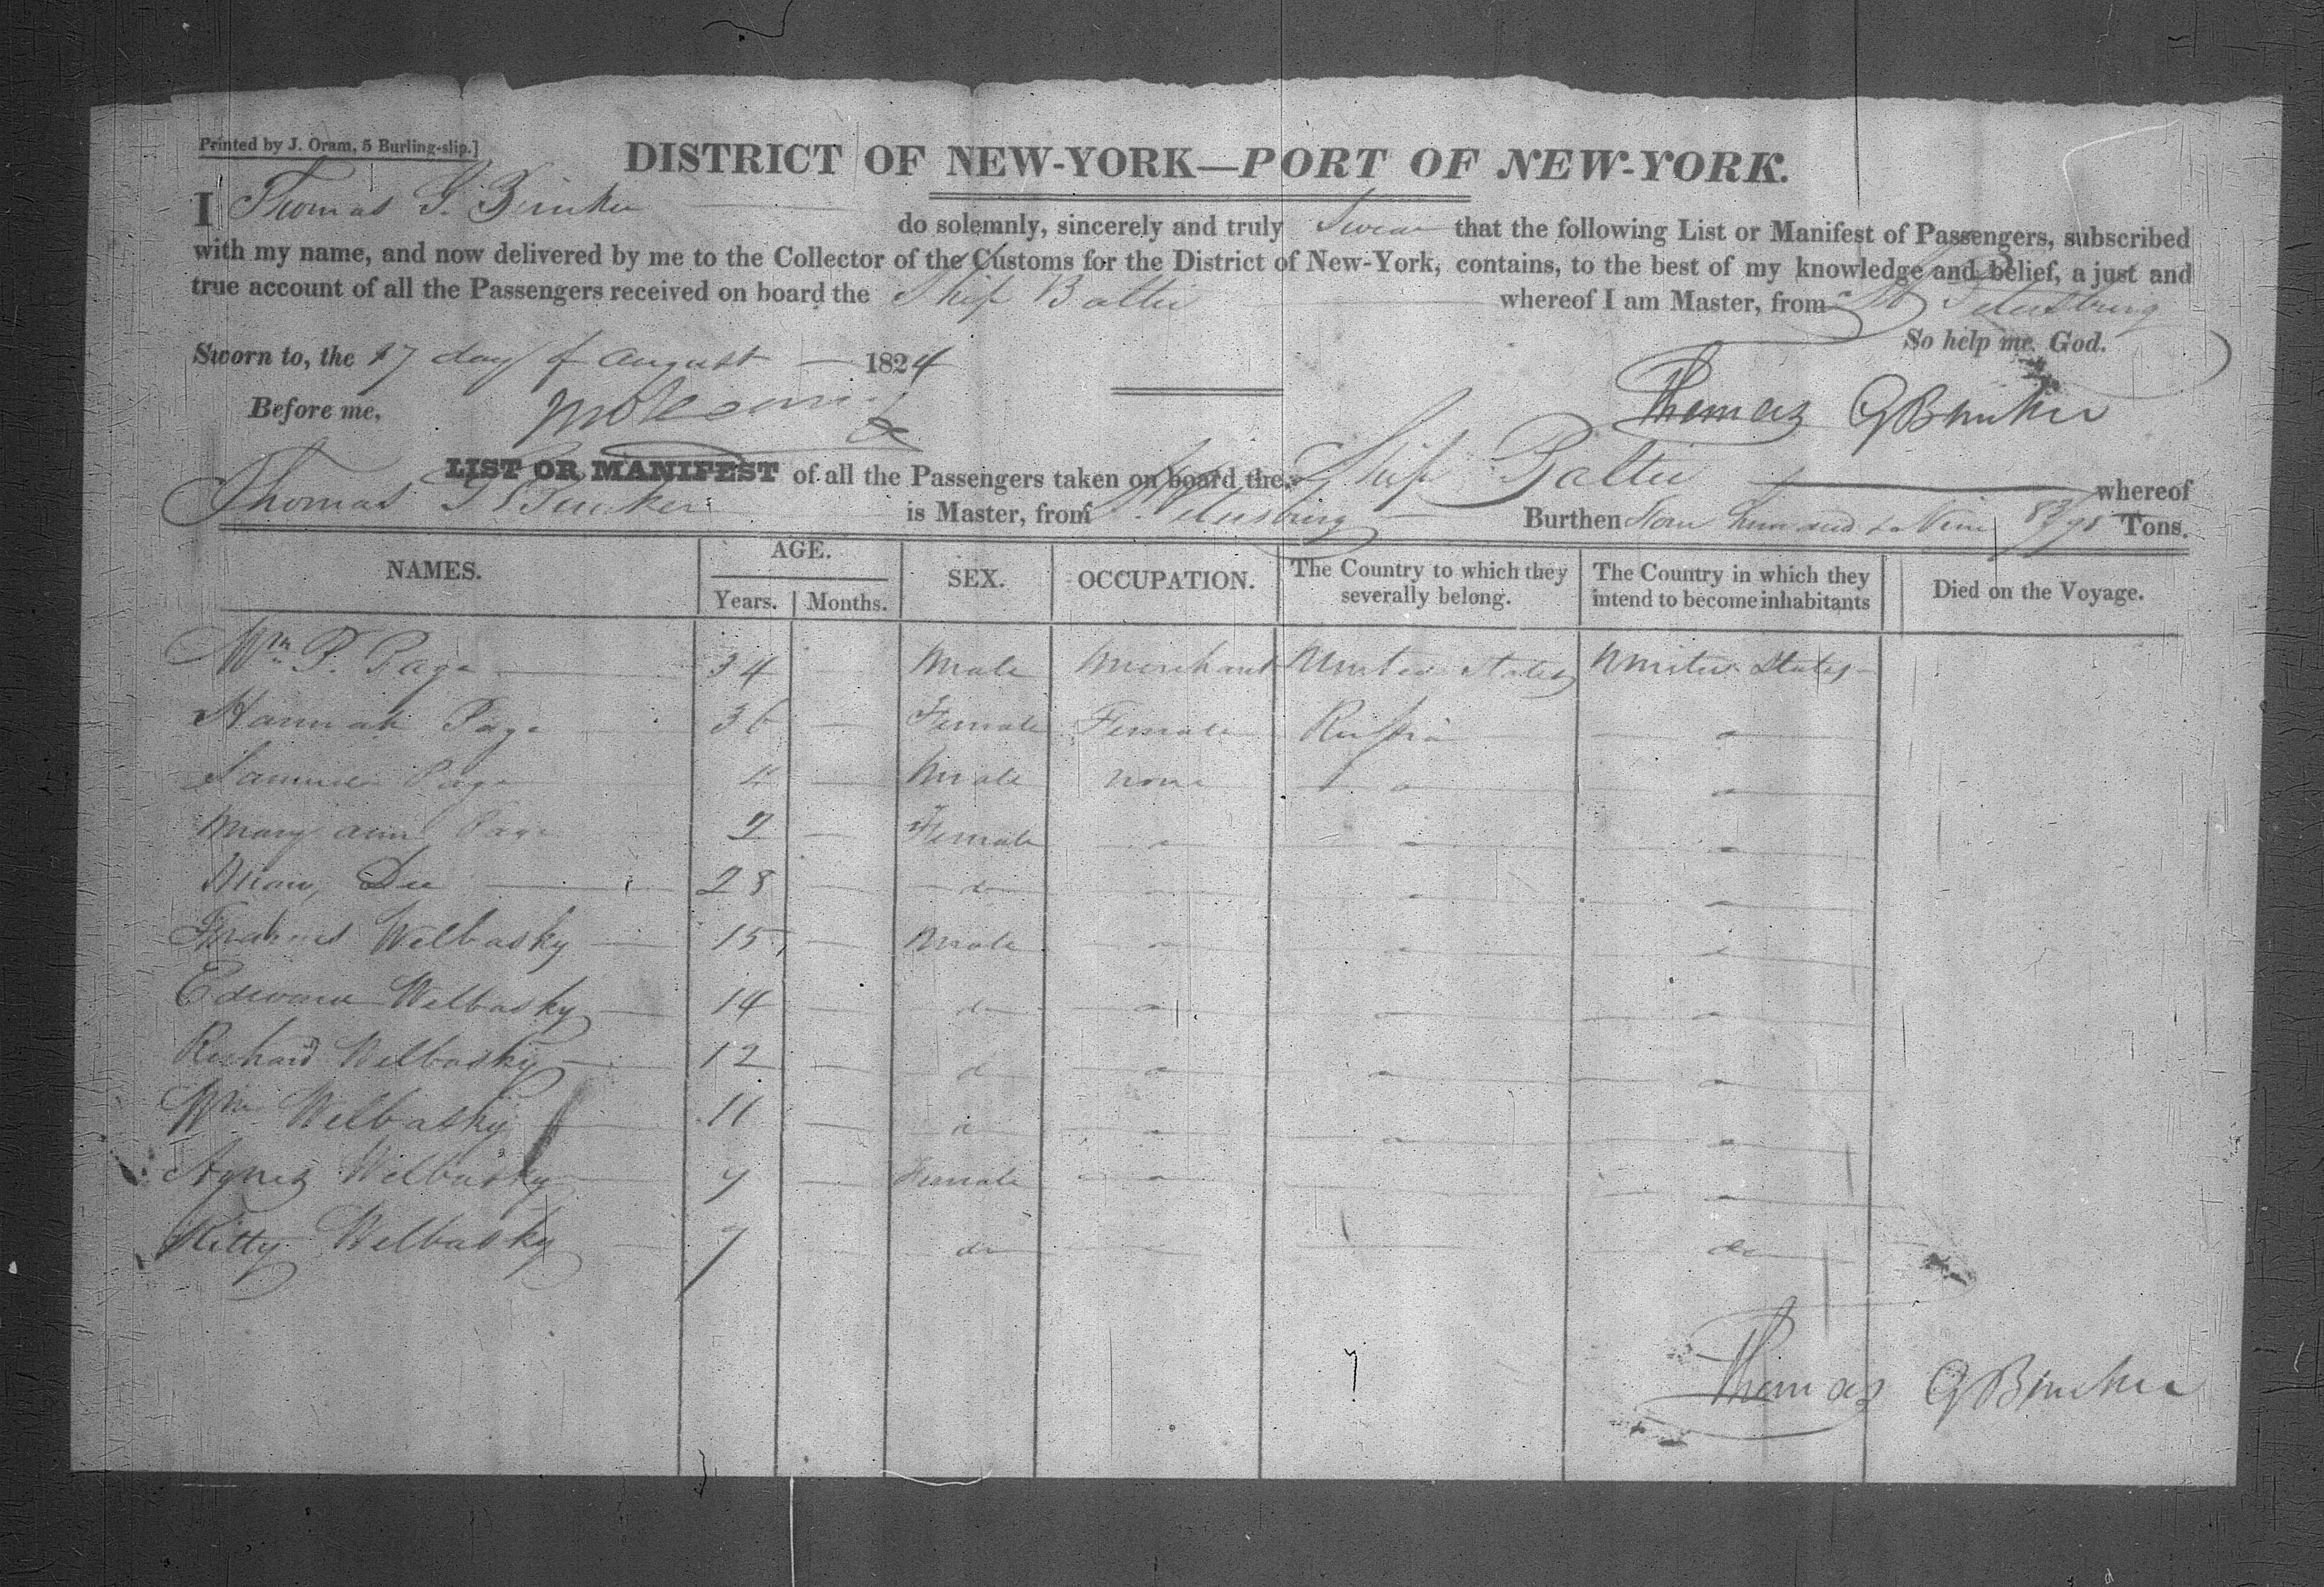 Printed by J. Oram, 5 Burling-slip.]
DISTRICT OF NEW-YORK—PORT OF NEW-YORK.
I Thomas G. Bunker do solemnly, sincerely and truly Swear that the following List or Manifest of Passengers, subscribed
with my name, and now delivered by me to the Collector of the Customs for the District of New-York, contains, to the best of my knowledge and belief, a just and
true account of all the Passengers received on board the Ship Baltic whereof I am Master, from St Petersburg
So help me God.
Sworn to, the 17 day of August 1824
Before me,
Thomas G Bunker
LIST OR MANIFEST of all the Passengers taken on board the Ship Baltic whereof
Thomas G Bunker is Master, from St. Petersburg Burthen Four Hundred & Nine 83/95 Tons.
NAMES. AGE. SEX. OCCUPATION. The Country to which they severally belong. The Country in which they intend to become inhabitants Died on the Voyage.
Years. Months.
Wm P. Page 34 Male Merchant United States United States
Hannah Page 36 Female Female Russia "
Samuel Page 4 Male none " "
Mary ann Page 2 Female " " "
Dee 28 do " "
Frances Welbasky 15 Male " " "
Edward Welbasky 14 do " " "
Richard Welbasky 12 do " " "
Wm Welbasky 11 do " " "
Agnes Welbasky 9 Female " "
Kitty Welbasky 7 do do
Thomas G Bunker